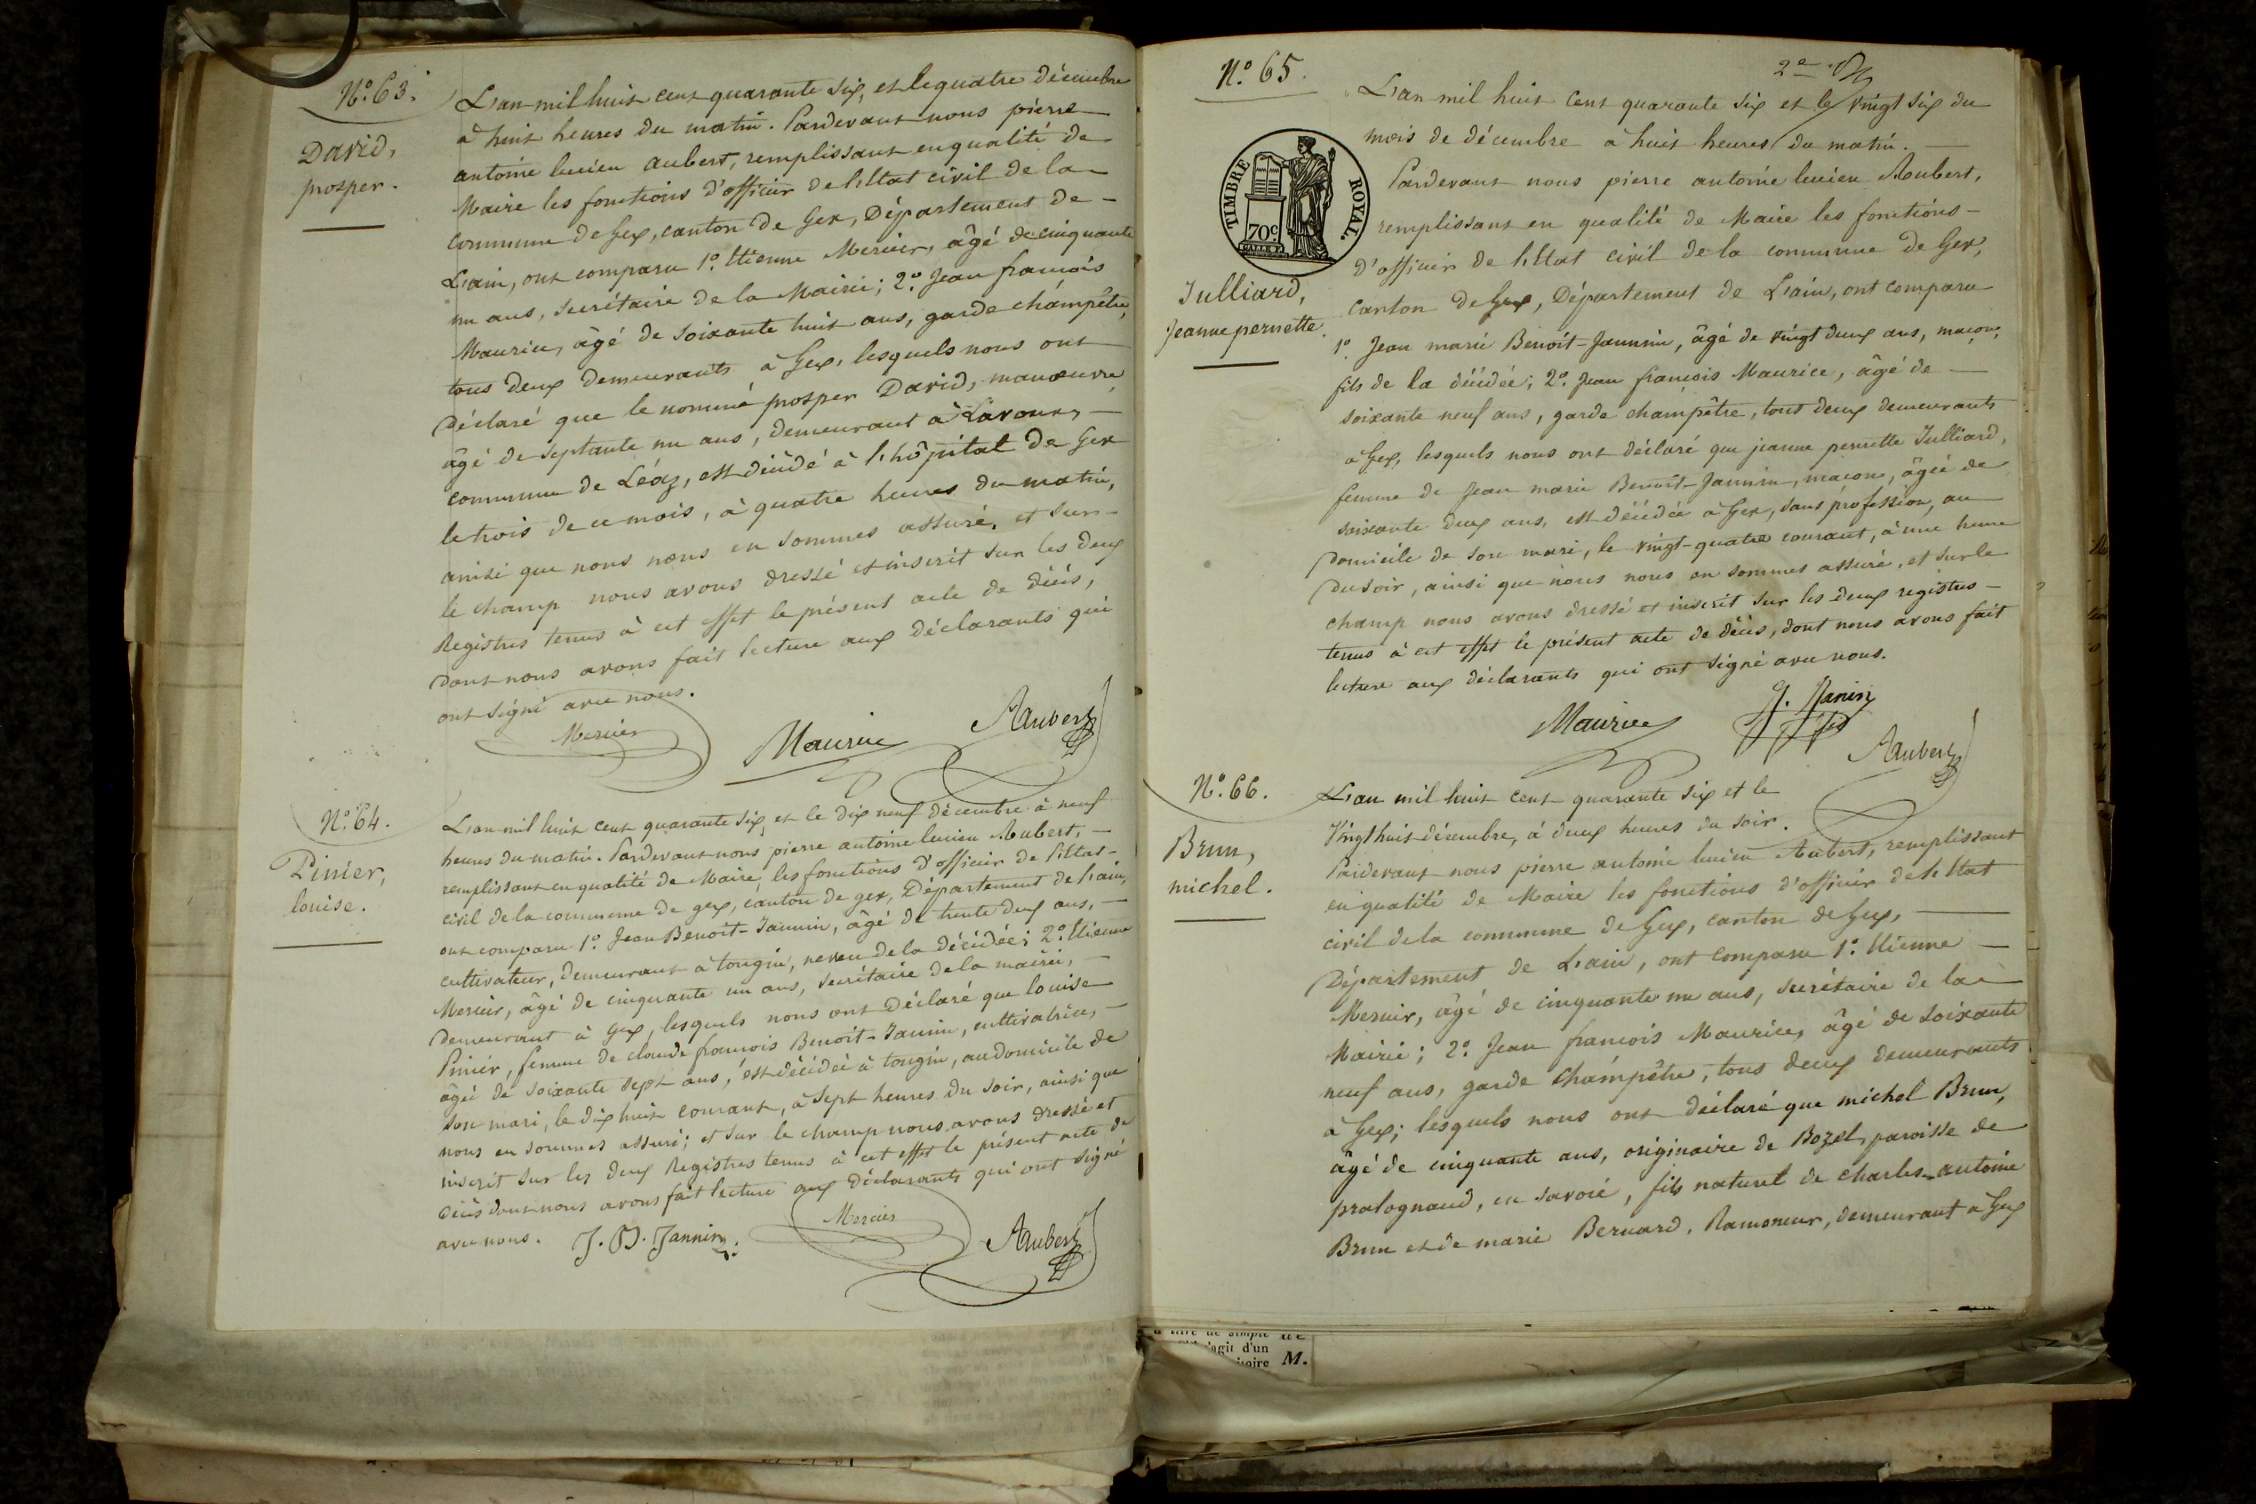 N.° 63.
David,
prosper.
L'an mil huit cent quarante six, et le quatre décembre
à huit heures du matin. Pardevant nous pierre
antoine lucien aubert, remplissant en qualité de
Maire les fonctions d'officier de l'Etat civil de la
commune de Gex, canton de Gex, Département de
L'ain, ont comparu 1.° Etienne Mercier, âgé de cinquante
un ans, secrétaire de la Mairie; 2.° Jean françois
Maurice, âgé de soixante huit ans, garde champêtre,
tous deux demeurants à Gex, lesquels nous ont
Déclaré que le nommé prosper David, manœuvre,
âgé de septante un ans, demeurant à Lavoux,
commune de Léaz, est décédé à l'hôpital de Gex
le trois de ce mois, à quatre heures du matin,
ainsi que nous nous en sommes assuré, et sur
le champ nous avons dressé et inscrit sur les deux
Registres tenus à cet effet le présent acte de décès,
dont nous avons fait lecture aux déclarants qui
ont signé avec nous.
Mercier Maurice Aubert
N.° 64.
Pinier,
louise.
L'an mil huit cent quarante six, et le dix neuf décembre à neuf
heures du matin. Pardevant nous pierre antoine lucien Aubert,
remplissant en qualité de Maire, les fonctions d'officier de l'Etat
civil de la commune de gex, canton de gex, Département de l'ain,
ont comparu 1.° Jean Benoit-Jannin, âgé de trente deux ans,
cultivateur, demeurant à tougin, neveu de la décédée; 2.° Etienne
Mercier, âgé de cinquante un ans, secrétaire de la mairie,
Demeurant à Gex, lesquels nous ont déclaré que louise
Pinier, femme de claude françois Benoit-Jannin, cultivatrice,
âgée de soixante sept ans, est décédée à tougin, au domicile de
son mari, le dix huit courant, à sept heures du soir, ainsi que
nous en sommes assuré; et sur le champ nous avons dressé et
inscrit sur les deux Registres tenus à cet effet le présent acte de
décès dont nous avons fait lecture aux déclarants qui ont signé
avec nous. J. B. Jannin. Mercier Aubert
N.° 65.
2e
TIMBRE ROYAL.
70c
Julliard,
Jeanne pernette.
L'an mil huit cent quarante six et le vingt six du
mois de décembre à huit heures du matin.
Pardevant nous pierre antoine lucien Aubert,
remplissant en qualité de Maire les fonctions
d'officier de l'Etat civil de la commune de Gex,
canton de Gex, Département de L'ain, ont comparu
1.° Jean marie Benoit-Jannin, âgé de vingt deux ans, maçon,
fils de la décédée; 2.° Jean françois Maurice, âgé de
soixante neuf ans, garde champêtre, tous deux demeurants
à Gex, lesquels nous ont déclaré que jeanne pernette Julliard,
femme de Jean marie Benoit-Jannin, maçon, âgée de
soixante deux ans, est décédée à Gex, sans profession, au
Domicile de son mari, le vingt-quatre courant, à une heure
du soir, ainsi que nous nous en sommes assuré, et sur le
champ nous avons dressé et inscrit sur les deux registres
tenus à cet effet le présent acte de décès, dont nous avons fait
lecture aux déclarants qui ont signé avec nous.
Maurice J. Janin Aubert
N.° 66.
Brun,
michel.
L'an mil huit cent quarante six et le
Vingt huit décembre, à deux heures du soir.
Pardevant nous pierre antoine lucien Aubert, remplissant
en qualité de Maire les fonctions d'officier de l'Etat
civil de la commune de Gex, canton de Gex,
Département de L'ain, ont comparu 1.° Etienne
Mercier, âgé de cinquante un ans, secrétaire de la
Mairie; 2.° Jean françois Maurice, âgé de soixante
neuf ans, garde champêtre, tous deux demeurants
à Gex; lesquels nous ont déclaré que michel Brun,
âgé de cinquante ans, originaire de Bozel, paroisse de
pralognand, en savoie, fils naturel de charles-antoine
Brun et de marie Bernard, Ramoneur, demeurant à Gex
à titre de simple
s'agit d'un
M.